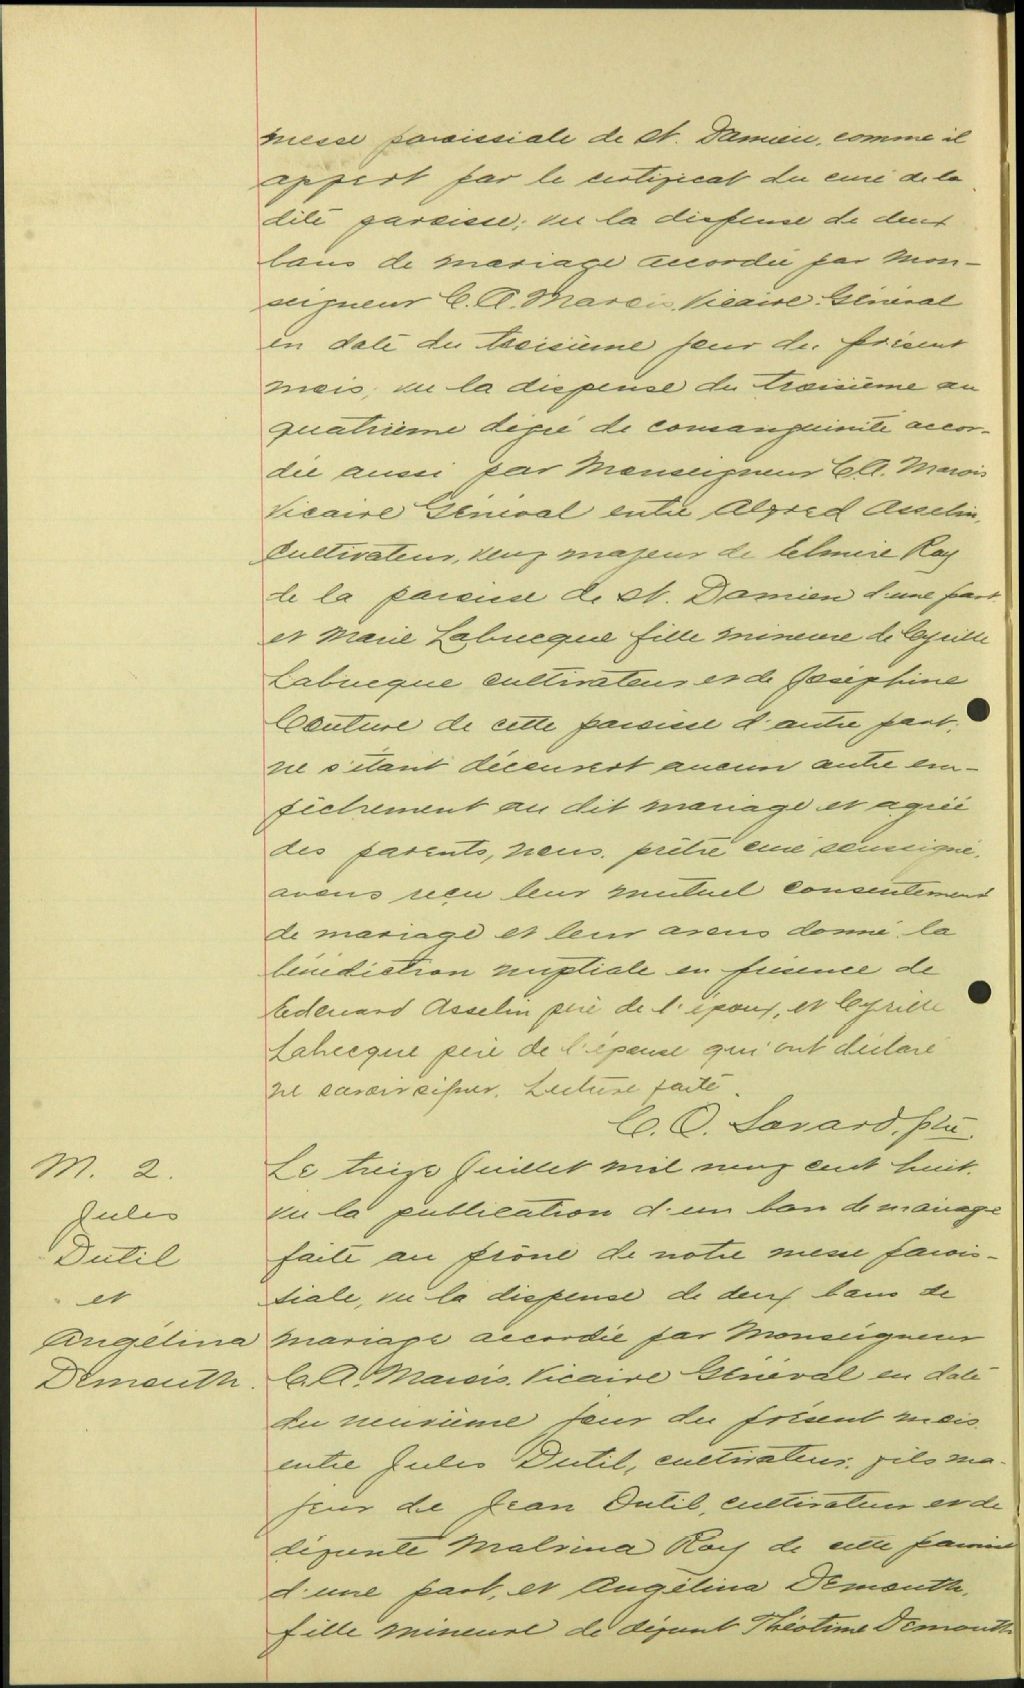 messe paroissiale de St. Damien, comme il
appert par le certificat du curé de la
dite paroisse; vu la dispense de deux
bans de mariage accordée par Mon-
seigneur C. A. Marois, Vicaire Général
en date du troisième jour du présent
mois; vu la dispense du troisième au
quatrième degré de consanguinité accor-
dée aussi par Monseigneur C. A. Marois
Vicaire Général entre Alfred Asselin,
Cultivateur, veuf majeur de Elmire Roy
de la paroisse de St. Damien d'une part
et Marie Labrecque fille mineure de Cyrille
Labrecque cultivateur et de Joséphine
Couture de cette paroisse d'autre part;
ne s'étant découvert aucun autre em-
pêchement au dit mariage et agréé
des parents, nous, prêtre curé soussigné,
avons reçu leur mutuel consentement
de mariage et leur avons donné la
bénédiction nuptiale en présence de
Edouard Asselin père de l'époux, et Cyrille
Labrecque père de l'épouse qui ont déclaré
ne savoir signer. Lecture faite.
C. O. Savard, ptre.
M. 2.
Jules
Dutil
et
Angélina
Demouth.
Le treize Juillet mil neuf cent huit,
vu la publication d'un ban de mariage
faite au prône de notre messe parois-
siale, vu la dispense de deux bans de
mariage accordée par Monseigneur
C. A. Marois, Vicaire Général en date
du neuvième jour du présent mois
entre Jules Dutil, cultivateur, fils ma-
jeur de Jean Dutil, cultivateur et de
défunte Malvina Roy de cette paroisse
d'une part, et Angélina Demouth,
fille mineure de défunt Théotime Demouth